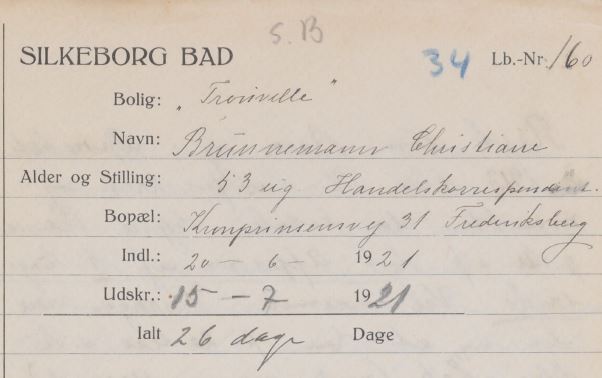 S.B
SILKEBORG BAD 34 Lb.-Nr. 160
Bolig: "Troisville"
Navn: Brünnemann Christiane
Alder og Stilling: 53 ug Handelskorrespondent.
Bopæl: Kronprinsensvej 31 Frederiksberg
Indl.: 20 - 6 - 1921
Udskr.: 15 - 7 1921
Ialt 26 dage Dage